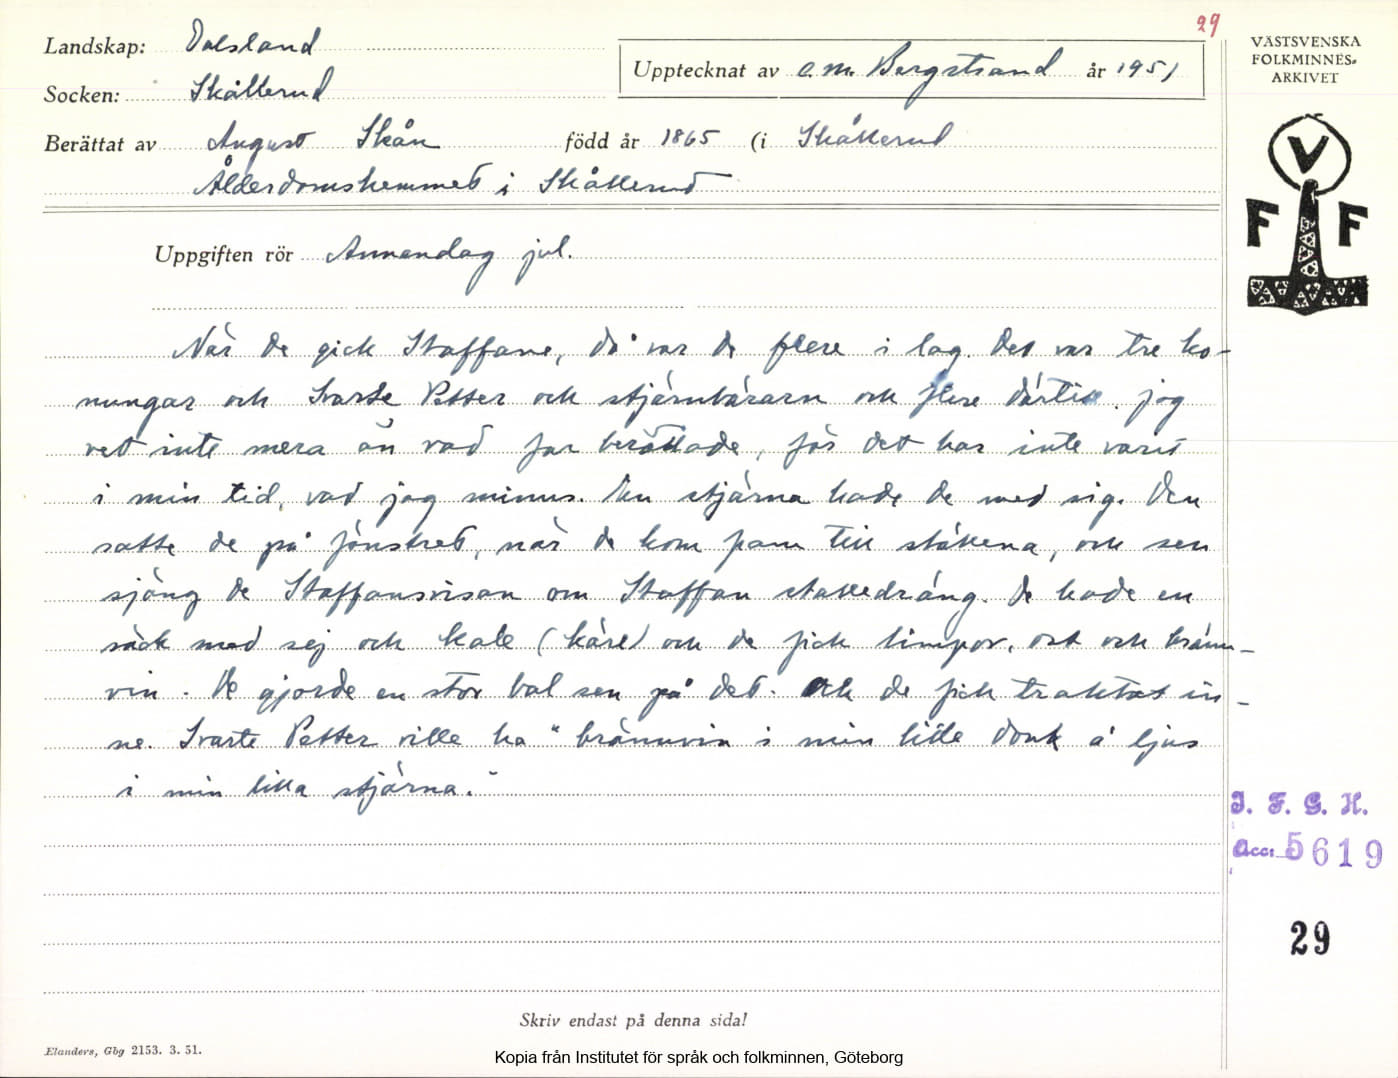 29
Landskap: Dalsland
Socken: Skållerud
Upptecknat av C.M. Bergstrand år 1951
Berättat av August Skån född år 1865 (i Skållerud
Ålderdomshemmet i Skållerud
VÄSTSVENSKA
FOLKMINNES-
ARKIVET
V
F F
Uppgiften rör Annandag jul.
När de gick Staffane, då var de flere i lag. Det var tre ko-
nungar och Svarte Petter och stjärnbärarn och flere därtill. jog
vet inte mera än vad far berättade, för det har inte varit
i min tid, vad jag minns. En stjärna hade de med sig. Den
satte de på fönstret, när de kom fram till ställena, och sen
sjöng de Staffansvisan om Staffan stalledräng. De hade en
säck med sej och kale (käre) och de fick limpor, ost och bränn-
vin. De gjorde en stor bal sen på det. Och de fick traktat in-
ne. Svarte Petter ville ha "brännvin i min lille donk å ljus
i min lilla stjärna."
I. F. G. H.
Acc: 5619
29
Skriv endast på denna sida!
Elanders, Gbg 2153. 3. 51.
Kopia från Institutet för språk och folkminnen, Göteborg